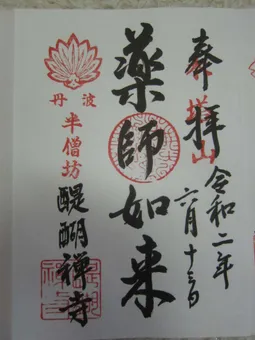 奉拝
令和二年
六月十三日
薬師如来
丹波
半僧坊
醍醐禅寺